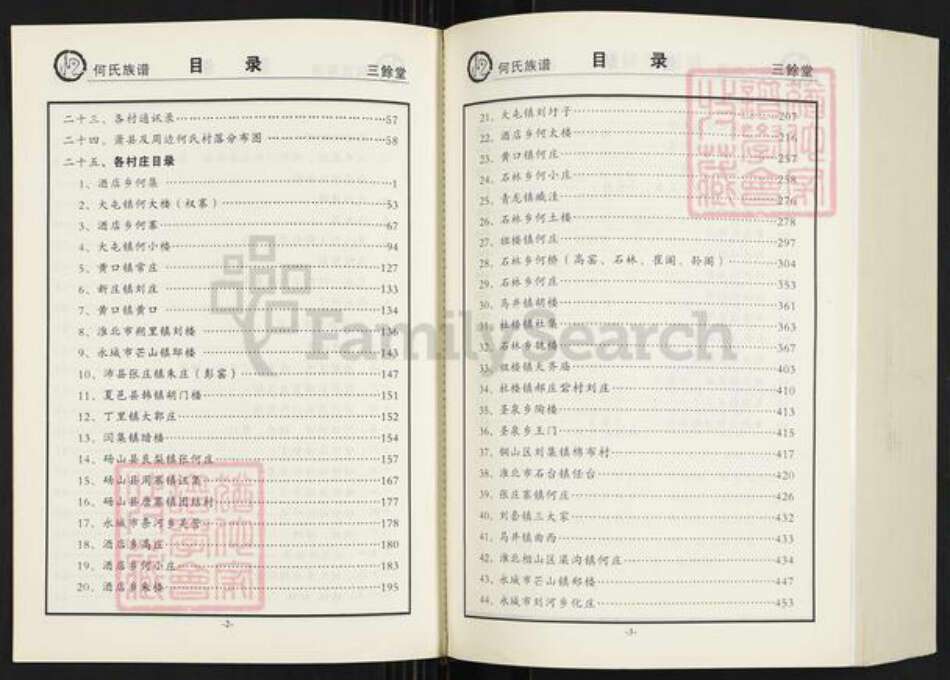 何氏族谱 目 录 三餘堂
二十三、各村通讯录 57
二十四、萧县及周边何氏村落分布图 58
二十五、各村庄目录
1、酒店乡何集 1
2、大屯镇何大楼（权寨） 53
3、酒店乡何寨 67
4、大屯镇何小楼 94
5、黄口镇常庄 127
6、新庄镇刘庄 133
7、黄口镇黄口 134
8、淮北市朔里镇刘楼 136
9、永城市芒山镇邸楼 143
10、沛县张庄镇朱庄（彭窑） 147
11、夏邑县韩镇胡门楼 151
12、丁里镇大郭庄 152
13、闫集镇暗楼 154
14、砀山县良梨镇张何庄 157
15、砀山县周寨镇汪集 167
16、砀山县唐寨镇团结村 177
17、永城市条河乡吴营 178
18、酒店乡高庄 180
19、酒店乡何小庄 183
20、酒店乡朱楼 195
-2-
何氏族谱 目 录 三餘堂
21、大屯镇刘圩子 207
22、酒店乡何大楼 216
23、黄口镇何庄 257
24、石林乡何小庄 258
25、青龙镇臧洼 276
26、石林乡何土楼 278
27、祖楼镇何庄 297
28、石林乡何桥（高窑、石林、崔阁、孙阁） 304
29、石林乡何庄 353
30、马井镇胡楼 361
31、杜楼镇杜集 363
32、石林乡姚楼 367
33、祖楼镇天齐庙 403
34、杜楼镇郝庄砦村刘庄 410
35、圣泉乡陶楼 413
36、圣泉乡王门 415
37、铜山区刘集镇棉布村 417
38、淮北市石台镇任台 420
39、张庄寨镇何庄 426
40、刘套镇三大家 432
41、马井镇曲西 433
42、淮北相山区渠沟镇何庄 434
43、永城市芒山镇邸楼 447
44、永城市刘河乡化庄 453
-3-
FamilySearch